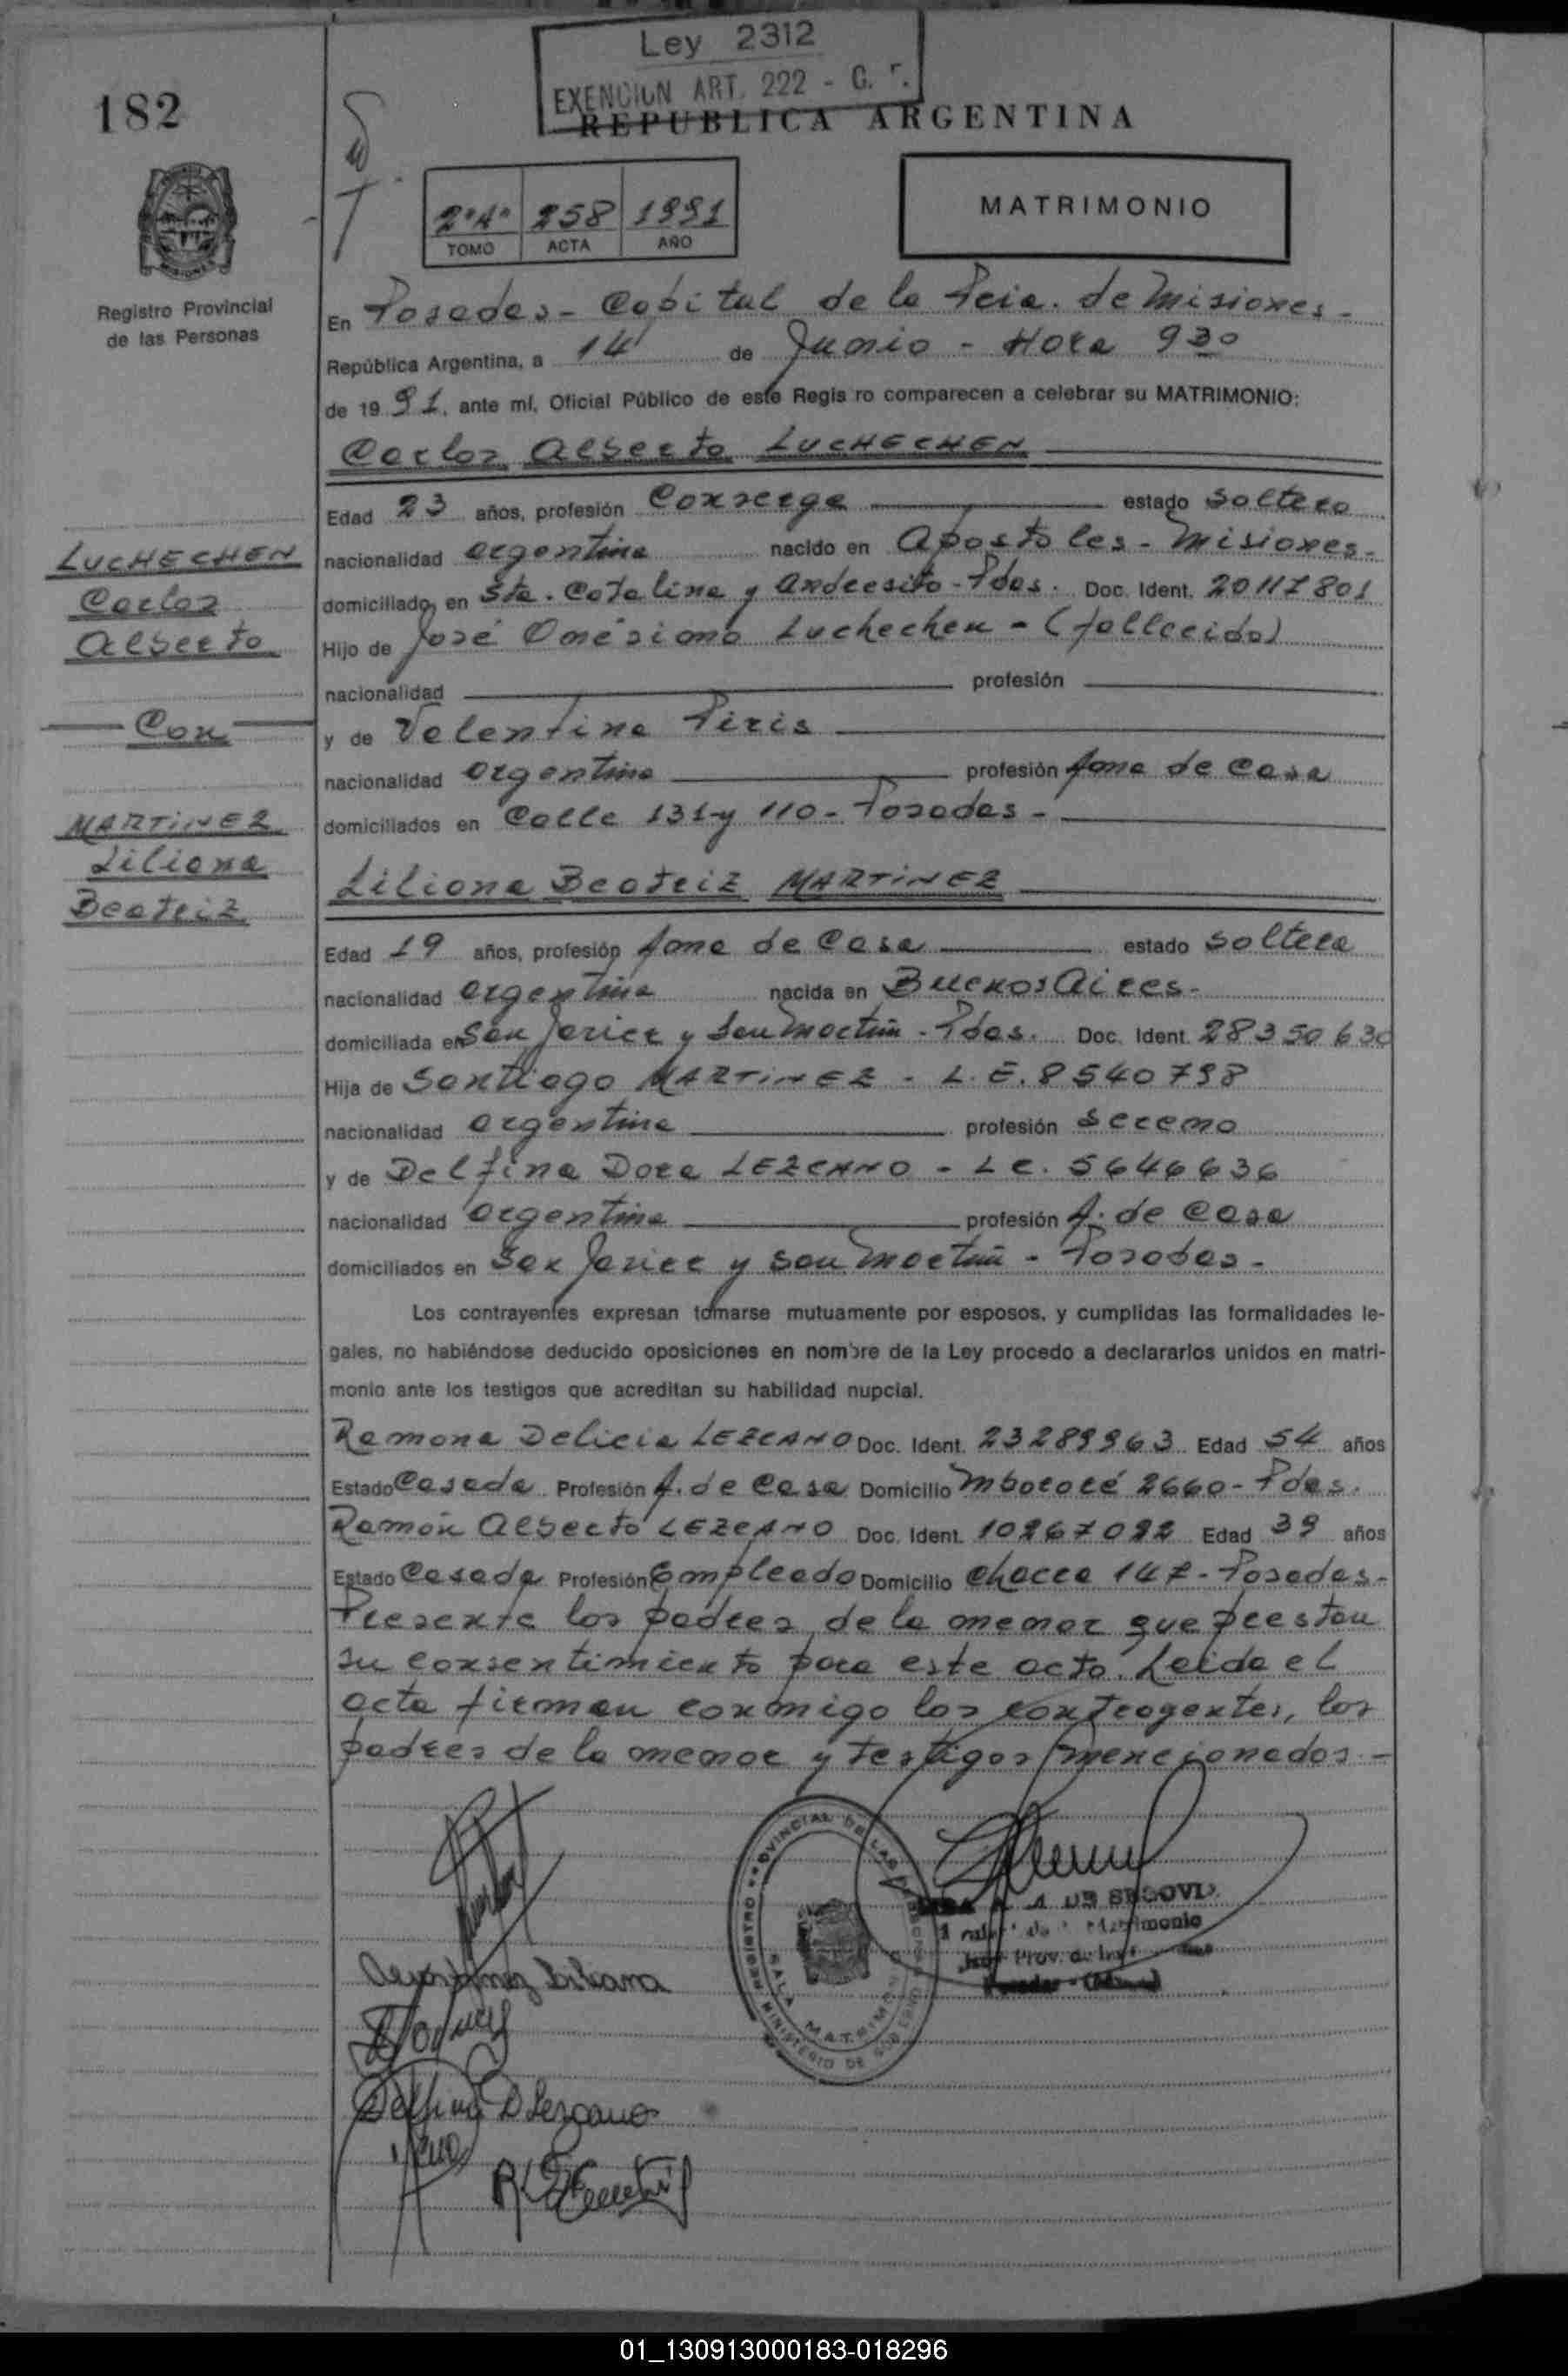 Ley 2312
EXENCION ART. 222 - C. F.
182
REPUBLICA ARGENTINA
2º"A" 258 1991
TOMO ACTA AÑO
MATRIMONIO
Registro Provincial
de las Personas
En Posadas - Capital de la Pcia. de Misiones -
República Argentina, a 14 de Junio - Hora 930
de 1991, ante mí, Oficial Público de este Regis ro comparecen a celebrar su MATRIMONIO:
Carlos Alberto LUCHECHEN
Edad 23 años, profesión Conserge estado soltero
nacionalidad argentina nacido en Apostoles - Misiones -
domiciliado en Sta. Catalina y Andresito - Pdas. Doc. Ident. 20117801
Hijo de José Onésimo Luchechen - (fallecido)
nacionalidad profesión
y de Valentina Piris
nacionalidad argentina profesión Ama de Casa
domiciliados en Calle 131 y 110 - Posadas -
LUCHECHEN
Carlos
Alberto
Con
MARTINEZ
Liliana
Beatriz
Liliana Beatriz MARTINEZ
Edad 19 años, profesión Ama de Casa estado soltera
nacionalidad argentina nacida en Buenos Aires -
domiciliada en San Javier y San Martín - Pdas. Doc. Ident. 28350630
Hija de Santiago MARTINEZ - L.E. 8540798
nacionalidad argentina profesión Sereno
y de Delfina Dora LEZCANO - L C. 5646636
nacionalidad argentina profesión A. de Casa
domiciliados en San Javier y San Martín - Posadas -
Los contrayentes expresan tomarse mutuamente por esposos, y cumplidas las formalidades le-
gales, no habiéndose deducido oposiciones en nombre de la Ley procedo a declararlos unidos en matri-
monio ante los testigos que acreditan su habilidad nupcial.
Ramona Delicia LEZCANO Doc. Ident. 23289963 Edad 54 años
Estado Casada Profesión A. de Casa Domicilio Mbororé 2660 - Pdas.
Ramón Alberto LEZCANO Doc. Ident. 10267092 Edad 39 años
Estado Casado Profesión Empleado Domicilio Chacra 147 - Posadas -
Presente los padres de la menor que prestan
su consentimiento para este acto. Leida el
acta firman conmigo los contrayentes, los
padres de la menor y testigos mencionados. -
REGISTRO PROVINCIAL DE LAS PERSONAS
SALA MATRIMONIO
MINISTERIO DE GOBIERNO
DE SEGOVIA
Matrimonio
Liliana
Delfina D Lezcano
01_130913000183-018296